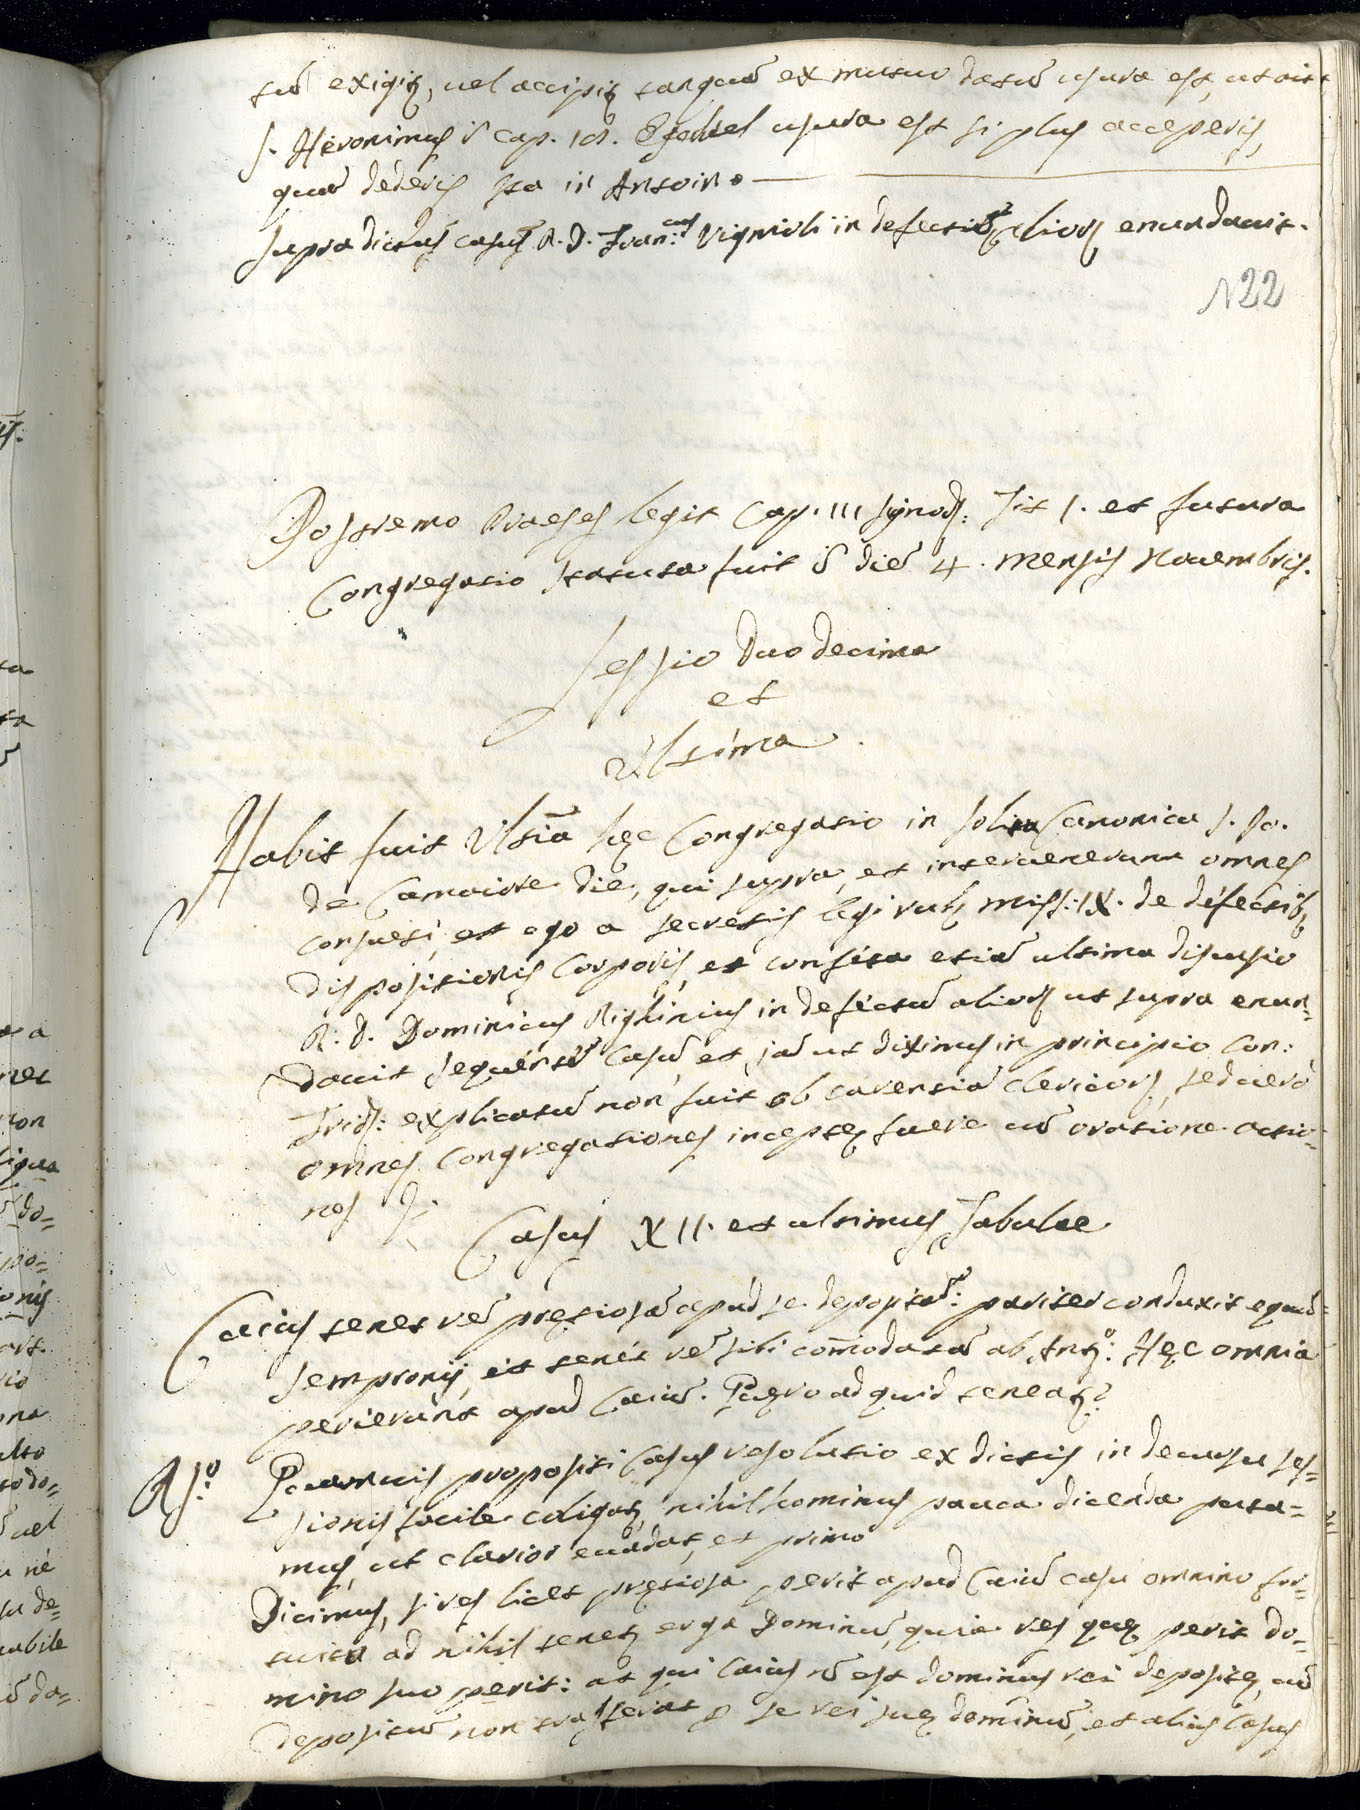 tũ exigit, uel accipit tanquã ex mutuo datũ usura est, ut ait
S. Hieronimus ĩ cap. 18. Ezechiel usura est si plus acceperis,
quã dederis Ita in Antoin.
Supradictus casus R. D. Fran:cus Vignioli in defectũ aliorũ enundauit.
122
Postremo Praeses legit Cap. III synod: Tit 1. et futura
Congregatio statuta fuit ĩ diẽ 4. mensis Nouembris.
Sessio duodecima
et
Ultima
Habit fuit Ultiã hęc Congregatio in solita Canonica S. Jo.
de Camaiore die, qui supra, et interuenerunt omnes
consueti, et ego a secretis legi rub. miss: IX. de defectib9
dispositionis Corporis, et confecta etiã ultima discusio
R: D. Dominicus Righinius in defectũ aliorũ ut supra enun=
dauit sequentẽ Casũ, et jã ut diximus in principio Con:
Frid: explicatũ non fuit ob carentiã clericorũ, sed uero
omnes Congregationes inceptę fuere cũ oratione actio=
nes &:
Casus XII. et ultimus Tabulae
Caius tenet rẽ pretiosã apud se depositã: pariter conduxit equũ
Sempronij, et tenet rẽ sibi com̃odatã ab Ant:o Hęc omnia
perierunt apud Caiũ. Quęro ad quid teneat?
Rs:o Quamuis propositi Casus resolutio ex dictis in decursu ses=
sionis facile coligat, nihilhominus pauca dicenda puta=
mus, ut clarior euadat, et primo
Dicimus, si res licet pretiosa perit apud Caiũ casu omnino for=
tuitu ad nihil tenet erga Dominũ, quia res quę perit do=
mino suo perit: at qui Caius nõ est dominus rei depositę, cũ
depositũ non trasferat p se rei suę dominiũ, et alius Casus